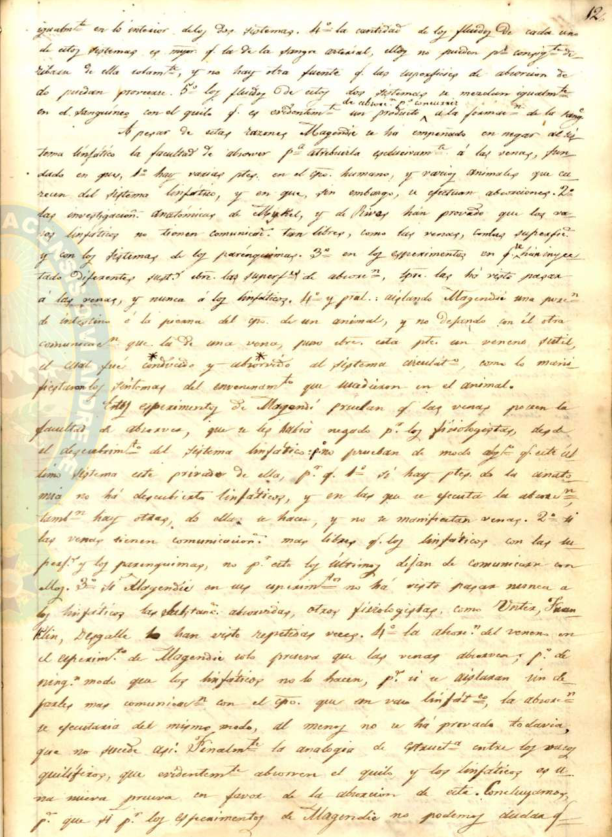 12.
igualm.te en lo interior de los dos sistemas. 4.o la cantidad de los fluidos de cada uno
de estos sistemas es mayor q.e la de la sangre arterial, ellos no pueden p.r consig.te de-
ribarse de ella solam.te, y no hay otra fuente q.e las superficies de absorcion de
do puedan provenir. 5.o los fluidos de estos dos sistemas se mezclan igualm.te
en el sanguineo con el quilo q.e es evidentem.te un producto de absor.n p.a concurrir a la formac.n de la sang.
A pesar de estas razones Magendie se ha empeñado en negar al sis-
tema linfatico la facultad de absorver p.a atribuirla esclusivam.te á las venas, fun-
dado en que, 1.o hay varias ptes. en el cpo. humano, y varios animales que ca-
recen del sistema linfatico, y en que, sin embargo, se efectuan absorciones. 2.o
las investigacion. anatomicas de y de Rivas han provado que los va-
sos linfaticos no tienen comunicac.n tan libres, como las venas, con las superfici.
y con los sistemas de los parenquimas. 3.o en los esperimentos en q.e han inyec-
tado diferentes sust.s sbre. las superf.s de absorc.n, spre. las ha visto pasar
á las venas, y nunca á los linfaticos. 4.o y pral.: aislando Magendie una porc.n
de intestino ó la pierna del cpo. de un animal, y no dejando con él otra
comunicac.n que la de una vena, puso sbre. esta pte. un veneno sutil,
el cual fue conducido y absorvido al sistema circulat.o, como lo mani-
festaron los sintomas del envenenam.to que acaecieron en el animal.
Estos esperimentos de Magendí prueban q.e las venas poseen la
facultad de absorver, que se les había negado p.r los fisiologistas, desde
el descubrim.to del sistema linfatico: p.o no prueban de modo alg.o q.e este ul-
timo sistema esté privado de ella, p.r q.e 1.o si hay ptes. de la anato-
mia no há descubierto linfaticos, y en las que se ejecuta la absorc.n,
tamb.n hay otras, do ellas se hacen, y no se manifiestan venas. 2.o si
las venas tienen comunicacion. mas libres q.e los linfaticos con las su-
perf.s y los parenquimas, no p.r esto los últimos dejan de comunicar con
ellos. 3.o Si Magendie en sus esperim.tos no há visto pasar nunca a
los linfaticos las substanc. absorvidas, otros fisiologistas como Unter,
lo han visto repetidas veces. 4.o la absorc.n del veneno en
el esperim.to de Magendie solo prueva que las venas absorven; p.o de
ning.n modo que los linfaticos no lo hacen, p.r si se aislaran sin de-
jarles mas comunicac.n con el cpo. que un vaso linfat.co, la absorc.n
se ejecutaria del mismo modo, al menos no se ha provado todavia,
que no suceda asi. Finalm.te la analogia de estruct.a entre los vasos
quiliferos, que evidentem.te absorven el quilo y los linfaticos es u-
na nueva prueva en favor de la absorcion de este. Concluyamos,
p.s que si p.r los esperimentos de Magendie no podemos dudar q.e